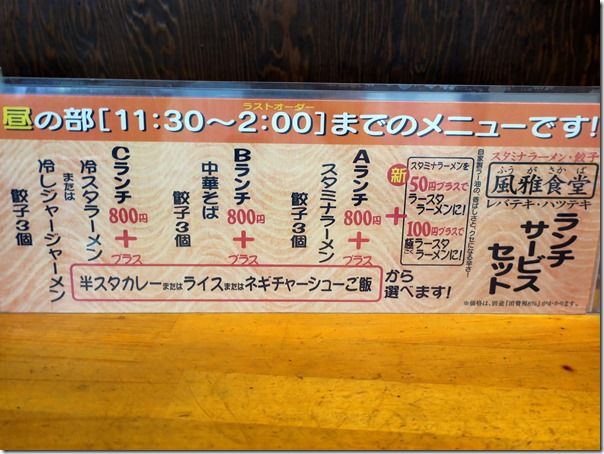 ラストオーダー
昼の部[11:30～2:00]までのメニューです!
スタミナラーメン・餃子
ふうがさかば
風雅食堂
レバテキ・ハツテキ
ランチ
サービス
セット
※価格は、別途「消費税8%」がかかります。
自家製ラー油の、香ばしさと、クセになる辛さ!
新
スタミナラーメンを
50円プラスで
ラースタ
ラーメンに!
100円プラスで
極ラースタ
ラーメンに!
Aランチ 800円
スタミナラーメン
＋
プラス
餃子3個
Bランチ 800円
中華そば
＋
プラス
餃子3個
Cランチ 800円
冷スタラーメン
または
冷しジャージャーメン
＋
プラス
餃子3個
半スタカレーまたはライスまたはネギチャーシューご飯
から
選べます!